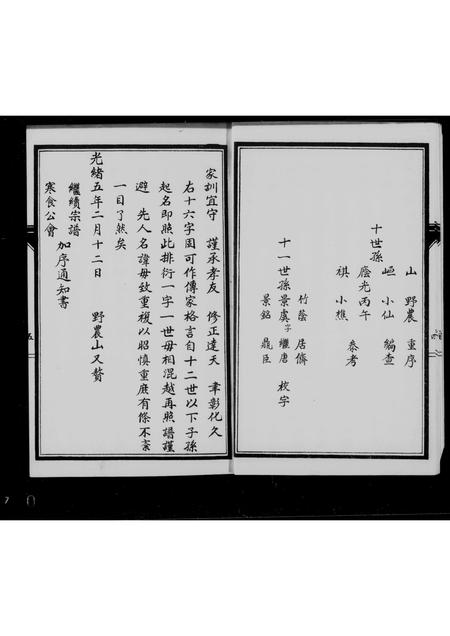 山 野農 重序
岖 小仙 編查
十世孫
蔭光丙午
祺 小樵 參考
竹蔭 居儕
十一世孫景虞子繼唐 校字
景銘 鼎臣
家訓宜守 謹承孝友 修正達天 聿彰化久
右十六字固可作傳家格言自十二世以下子孫
起名即照此排衍一字一世毋相混越再照譜謹
避 先人名諱毋致重複以昭慎重庶有條不紊
一目了然矣
光緒五年二月十二日 野農山又贅
繼續宗譜
寒食公會 加序通知書
五
7